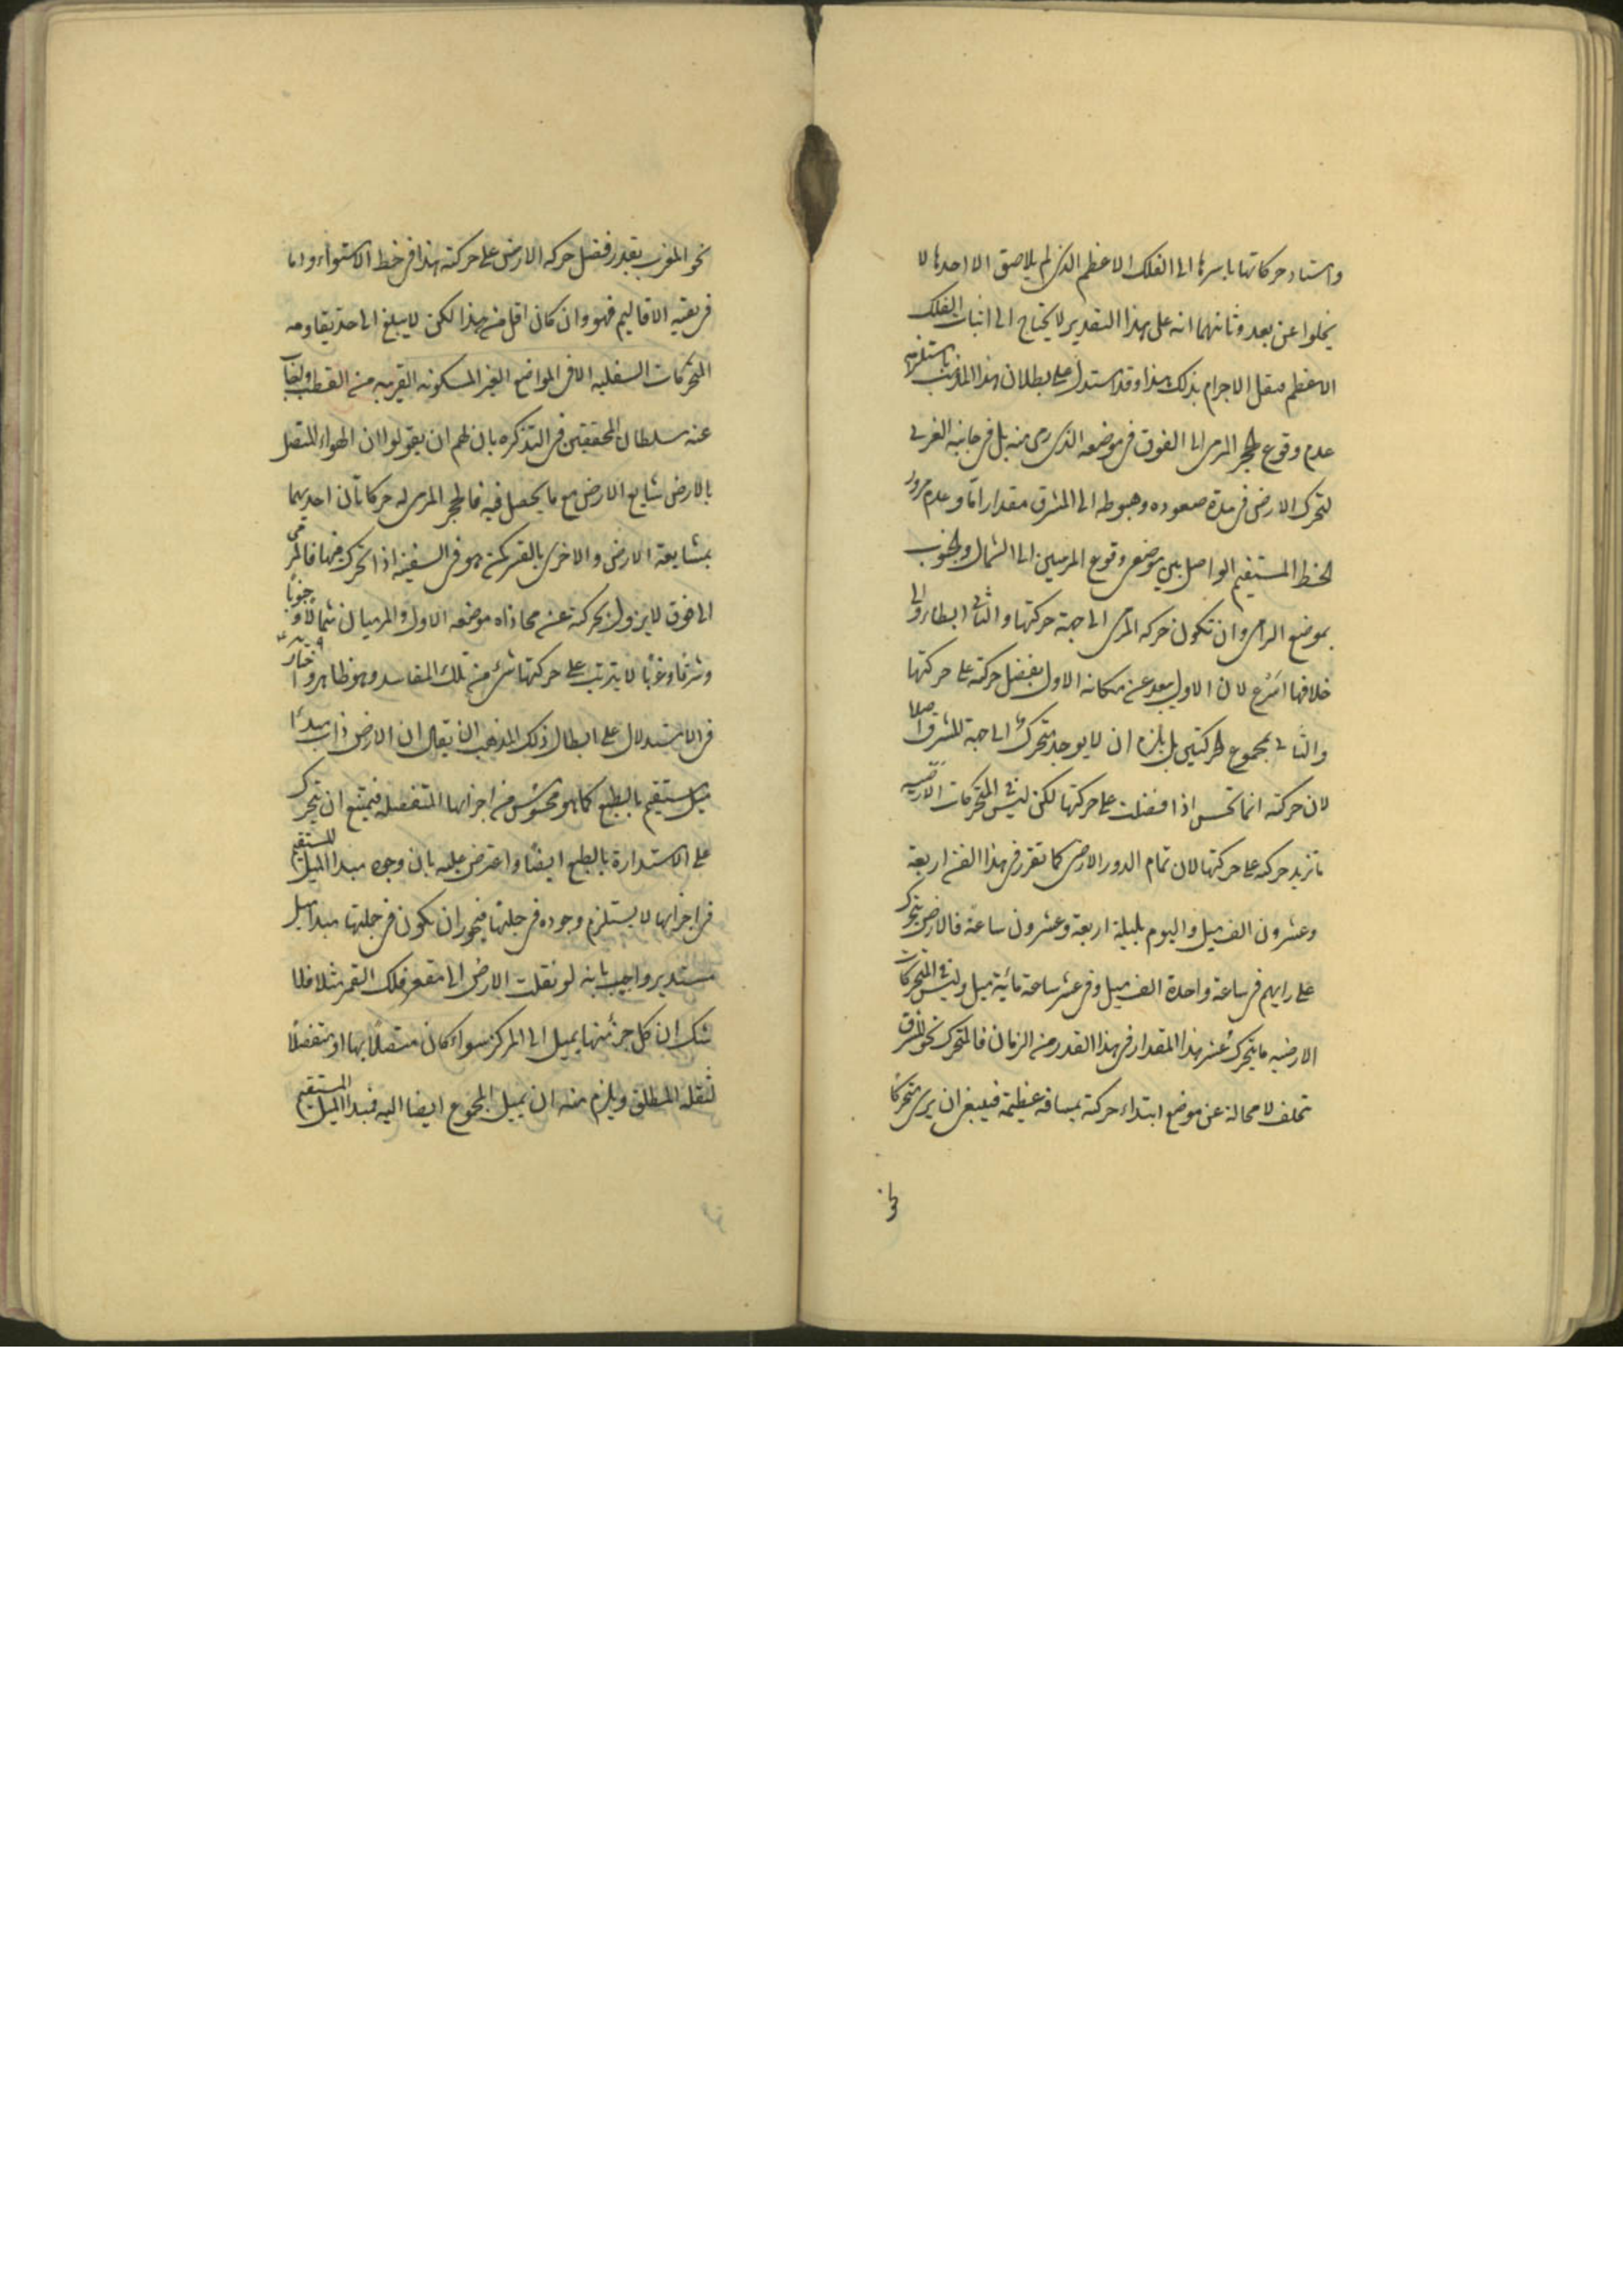 واستناد حركاتها باسرها الى الفلك الاعظم الذى لم يلاصق الا احدها لا
يخلوا عن بعد وثانيهما انه على هذا التقدير لا يحتاج الى اثبات الفلك
الاعظم فنقل الاجرام بذلك هذا وقد استدل على بطلان هذا المذهب باستلزامه
عدم وقوع الحجر المرمى الى الفوق فى موضعه الذى رمى منه بل فى جانبه الغربى
لتحرك الارض فى مدة صعوده وهبوطه الى المشرق مقدارا ما وعدم مرور
الخط المستقيم الواصل بين موضعى وقوع المرميين الى الشمال والجنوب
بموضع الرامى وان تكون حركة المرمى الى جهة حركتها والثانى ابطاء والى
خلافها اسرع لان الاول يبعد عن مكانه الاول بفضل حركته على حركتها
والثانى بمجموع الحركتين بل يلزم ان لا يوجد متحرك الى جهة المشرق اصلا
لان حركته انما تحس اذا فضلت على حركتها لكن ليس فى المتحركات الارضيه
ما تزيد حركته على حركتها لان تمام الدور الارضى كما تقرر فى هذا الفن اربعة
وعشرون الف ميل واليوم بليلة اربعة وعشرون ساعة فالارض يتحرك
على رايهم فى ساعة واحدة الف ميل وفى عشر ساعة مائة ميل وليس فى المتحركات
الارضيه ما يتحرك عشر هذا المقدار فى هذا القدر من الزمان فالمتحرك نحو المشرق
تخلف لا محالة عن موضع ابتداء حركته بمسافة عظيمة فينبغى ان يرى متحركا
نحو
نحو المغرب بقدر فضل حركة الارض على حركته هذا فى خط الاستواء واما
فى بقية الاقاليم فهو وان كان اقل من هذا لكن لا يبلغ الى حد يقاومه
المتحركات السفليه الا فى المواضع الغير المسكونه القريبه من القطب واجاب
عنه سلطان المحققين فى التذكره بان لهم ان يقولوا ان الهواء المتصل
بالارض يشايع الارض مع ما يحصل فيه فالحجر المرمى له حركتان احديهما
بمشايعة الارض والاخرى بالقسر كمن هو فى السفينه اذا تحرك فيها فالمرمى
الى فوق لا يزول بحركته عن محاذاه موضعه الاول والمرميان شمالا وجنوبا
وشرقا وغربا لا يترتب على حركتها شىء من تلك المفاسد وهو ظاهر واختار
فى الاستدلال على ابطال ذلك المذهب ان يقال ان الارض ذات مبدا
ميل مستقيم بالطبع كما هو محسوس من اجزائها المنفصله فيمتنع ان يتحرك
على الاستدارة بالطبع ايضا واعترض عليه بان وجود مبدا الميل المستقيم
فى اجزائها لا يستلزم وجوده فى جملتها فيجوز ان يكون فى جملتها مبدا ميل
مستدير واجيب بانه لو نقلت الارض الى مقعر فلك القمر مثلا فلا
شك ان كل جزء منها يميل الى المركز سواء كان متصلا بها او منفصلا
لثقله المطلق ويلزم منه ان يميل المجموع ايضا اليه فمبدا الميل المستقيم